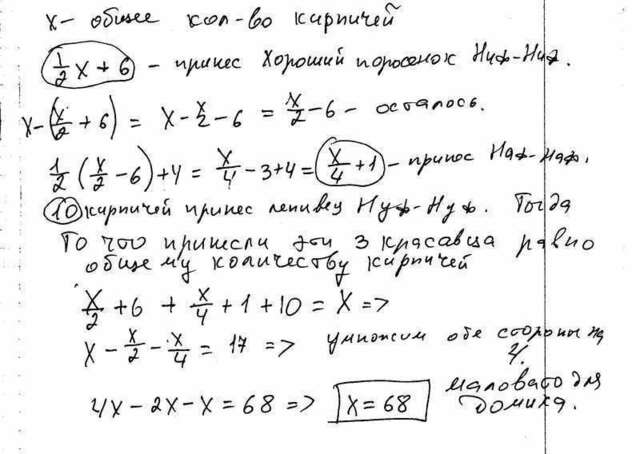 x - общее кол-во кирпичей
1/2 x + 6 - принес Хороший поросенок Ниф-Ниф.
x - (x/2 + 6) = x - x/2 - 6 = x/2 - 6 - осталось.
1/2 (x/2 - 6) + 4 = x/4 - 3 + 4 = x/4 + 1 - принос Наф-Наф.
10 кирпичей принес ленивец Нуф-Нуф. Тогда
То что принесли эти 3 красавца равно
общему количеству кирпичей
x/2 + 6 + x/4 + 1 + 10 = x =>
x - x/2 - x/4 = 17 => умножим обе стороны на 4.
4x - 2x - x = 68 => x = 68 маловато для домика.